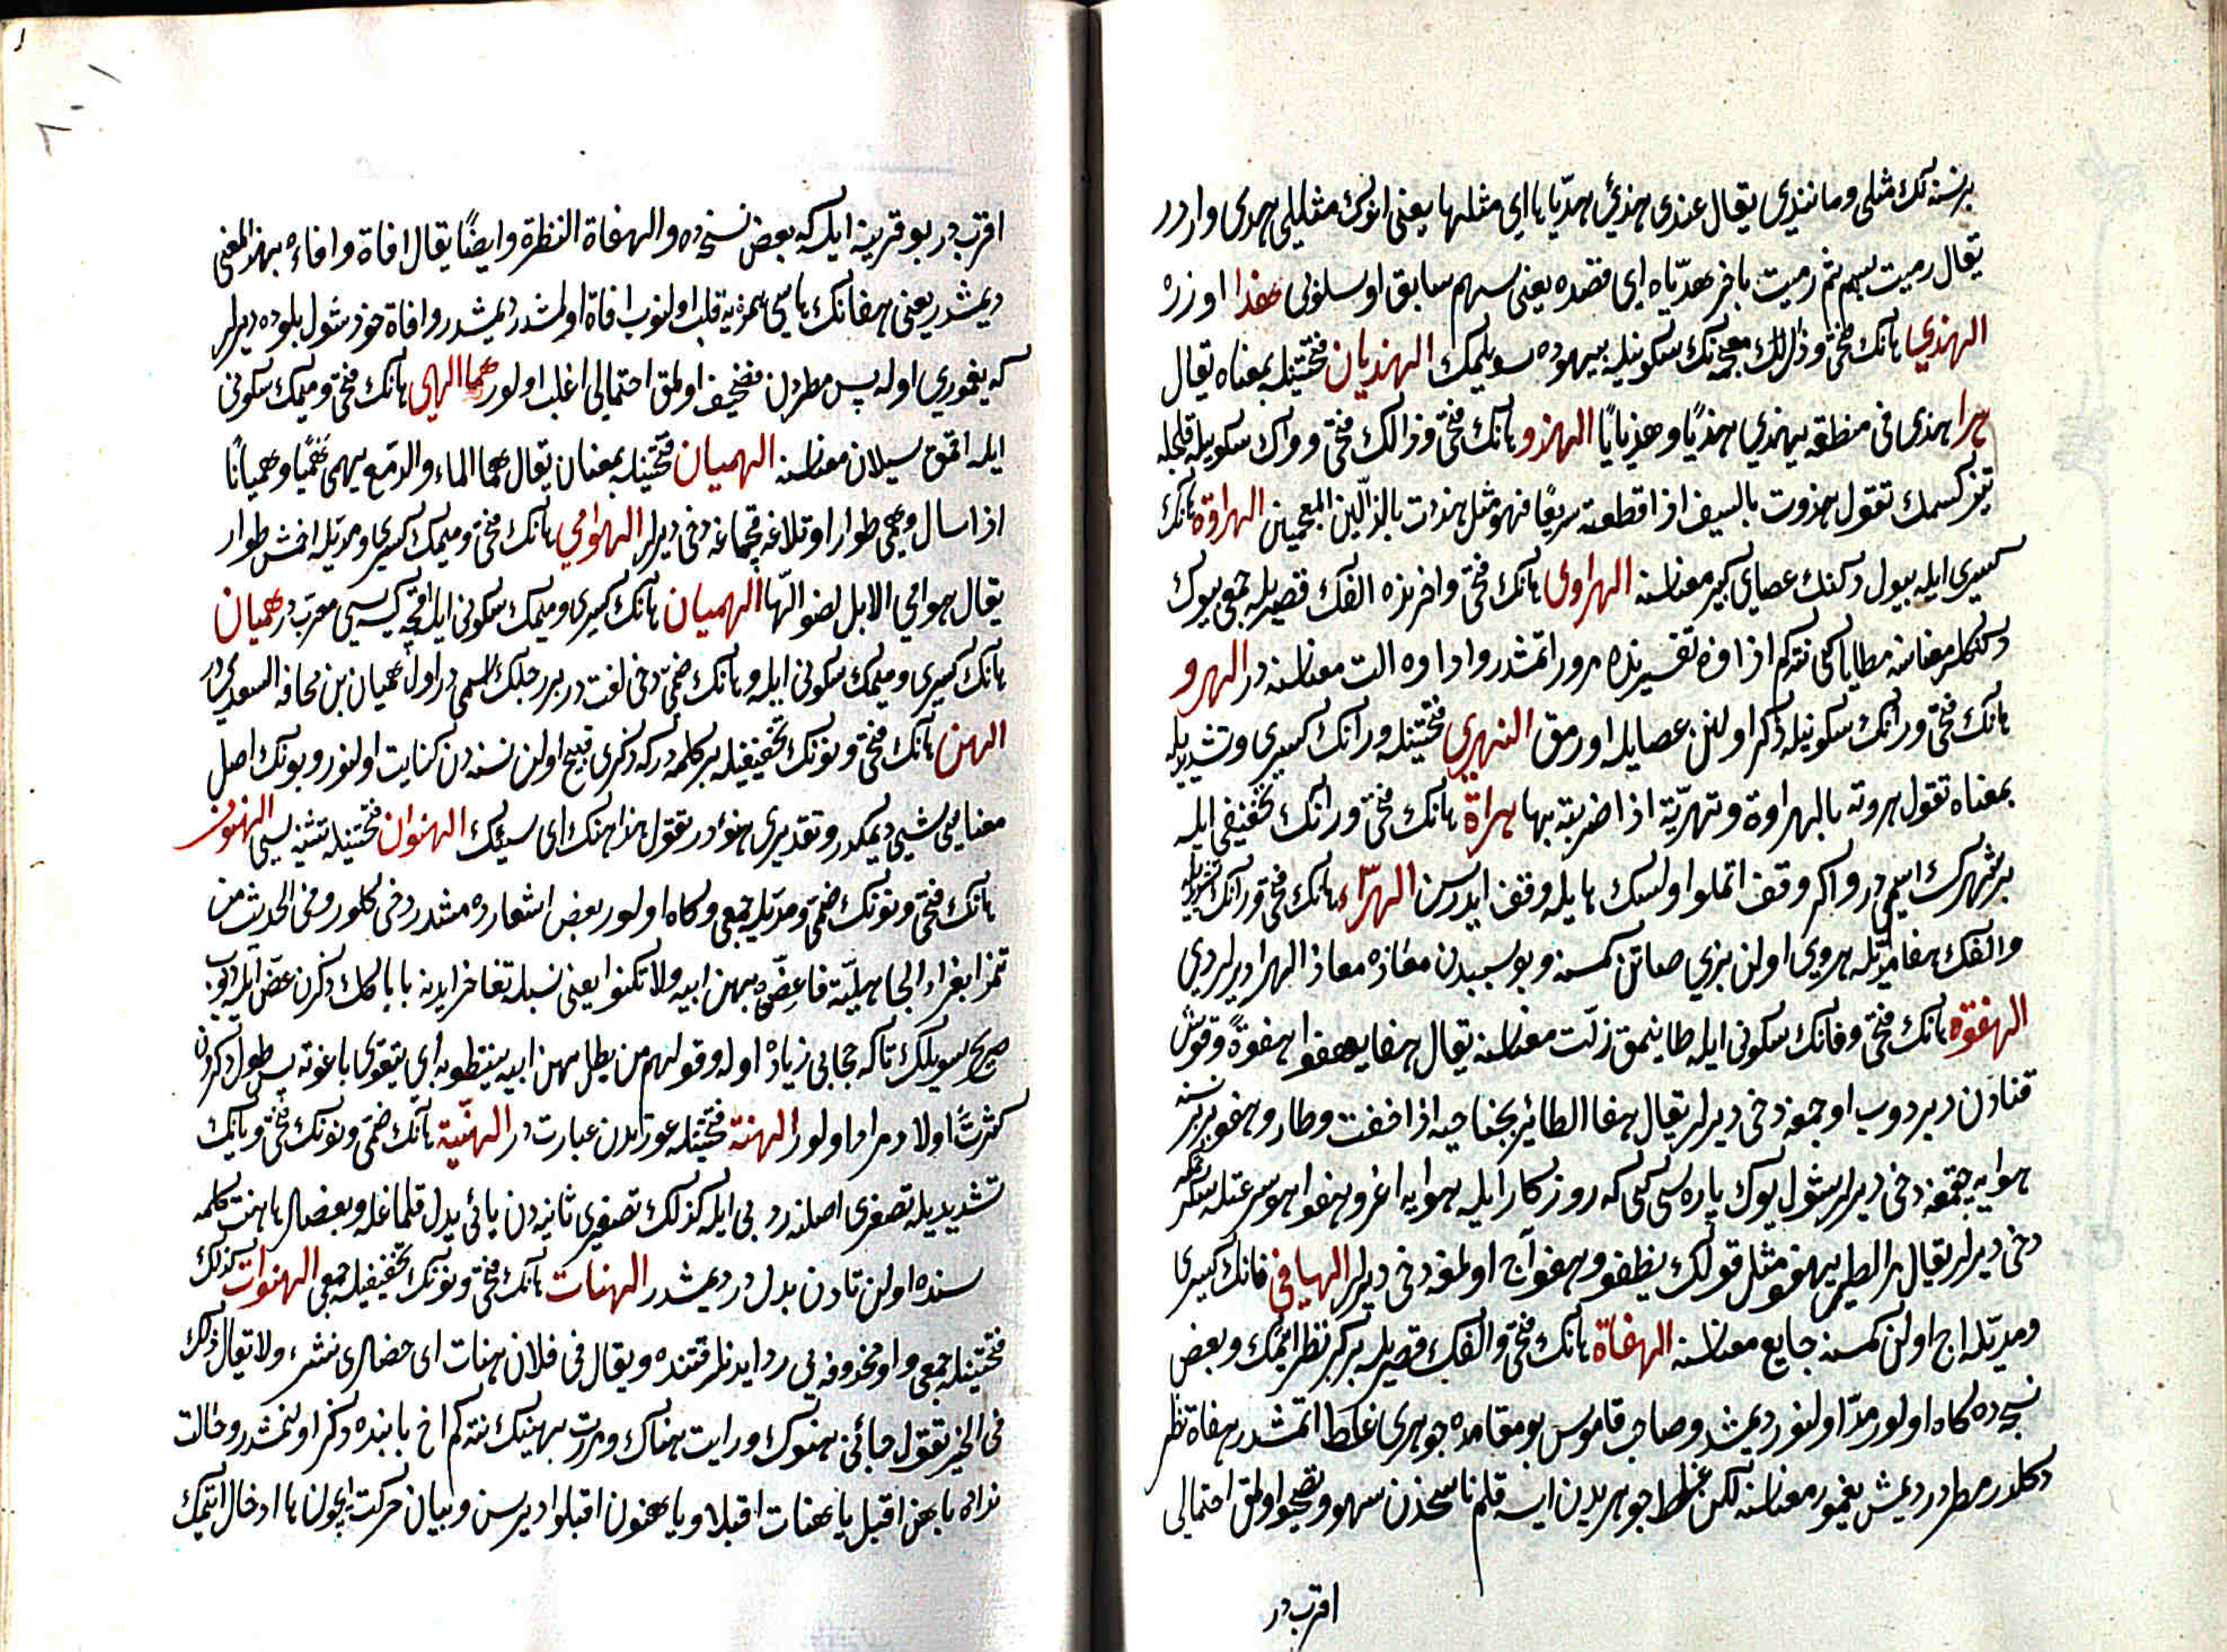 برنسنه نك مثلی و مانندی یقال عندی هذیّ هدیّاها ای مثلها یعنی انوك مثلیلی همدی واردر
یقال رمیت بسهم ثم رمیت باخر هدیّاه ای قصده یعنی سهم سابق اوسلوبی هذا اوزره
الهذی هانك فتحی و ذالك معجمه نك سكونیله بیهوده سویلمك الهذیان فتحتینله بمعناه تقال
هذی فی منطقه یهذی هذیًا و هذیانًا الهذو هانك فتحی و ذالك فتحی و واك سكونیله قلجله
تیز كسمك تقول هذوت بالسیف اذا قطعته سریعًا فهو مثل هذذت بالذالین المعجمتین الهراوة هانك
كسری ایله بیوك دكنك عصای كبیر معناسنه الهراوی هانك فتحی و اخرنده الفك قصریله جمعی بیوك
دكنكلر معناسنه مطایا كبی نته كم اذاوه تفسیرنده مرور اتمشدر و اداوه الت معناسنه در الهرو
هانك فتحی و رانك سكونیله ذكر اولنن عصایله اورمق التهری فتحتینله و رانك كسری و تشدیدیله
بمعناه تقول هروته بالهراوة و تهریته اذا ضربته بها هراة هانك فتحی و رانك تخفیفی ایله
برشهرك اسمیدر و اكر وقف اتملو اولسك هایله وقف ایدرسن الهرّاء هانك فتحی و رانك تشدیدیله
و الفك مدّیله هروی اولن بزی صاتن كمسنه و بو سببدن معاذه معاذ الهرا دیرلردی
الهفوة هانك فتحی و فانك سكونی ایله طاینمق زلت معناسنه یقال هفا یهفوا هفوةً و قوش
قنادن دبردوب اوچمغه دخی دیرلر یقال هفا الطائر بجناحیه اذا خفقت و طار و هفو بر نسنه
هوایه چقمغه دخی دیرلر شول یوك پاره سی كبی كه روزكار ایله هوایه اغر و هفوا هو سرعتله سكرتمكه
دخی دیرلر یقال مر الظبی یهفو مثل قولك یطفو و هفو آج اولمغه دخی دیرلر الهافی فانك كسری
و مدیله اج اولن كمسنه جایع معناسنه الهفاة هانك فتحی و الفك قصریله بركز نظر ایتمك و بعض
نسخه ده كاه اولور مدّ اولنور دیمشدر و صاحب قاموس بو مقامده جوهری غلط اتمشدر هفاة نظر
دكلدر مطردر دیمش یغمور معناسنه لكن غلط جوهریدن ایسه قلم ناسخدن سهو و تصحیف اولمق احتمالی
اقربدر
اقربدر بو قرینه ایله كه بعض نسخه ده و الهفاة النظرة و ایضًا یقال افاة و افاءه بهذا المعنی
دیمشدر یعنی هفانك هاسی همزه یه قلب اولنوب افاة اولمشدر دیمشدر و افاة خود شول بلوده دیرلر
كه یغموری اوله پس مطردن تصحیف اولمق احتمالی اغلب اولور الهمی هانك فتحی و میمك سكونی
ایله اقمق سیلان معناسنه الهمیان فتحتینله بمعنان یقال هما الماء و الدمع یهمی همیًا و همیانًا
اذا سال و همی طوار اوتلاغه چقماغه دخی دیرلر الهوامی هانك فتحی و میمك كسری و مدیله اخمش طوار
یقال هوامی الابل لضوالها الهمیان هانك كسری و میمك سكونی ایله اقچه كیسه سی معربدر همیان
هانك كسری و میمك سكونی ایله و هانك ضمی دخی لغت در بر رجلك اسمیدر اول همیان بن قحافه السعدیدر
الهن هانك فتحی و نونك تخفیفیله بر كلمه در كه ذكری قبیح اولن نسنه دن كنایت اولنور و بونك اصل
معناسی شیی دیمكدر و تقدیری هنو در تقول هذا هنك ای شیئك الهنوان فتحتینله تثنیه سی الهنون
هانك فتحی و نونك ضمی و مدیله جمعی و كاه اولور بعض اشعارده مشدد دخی كلور و فی الحدیث من
تعزا بعزاء الجاهلیة فاعضّوه بهن ابیه و لا تكنوا یعنی نسبله تفاخر ایدنه باباكك ذكرن عضّ ایله دیوب
صریح سویلك تا كه حجابی زیاده اوله و قولهم من یطل هن ابیه ینتطق به ای یتقوی باخوته پس طول ذكردن
كثرت اولاد مراد اولور الهنة فتحتینله عورتدن عبارت در الهنیة هانك ضمی و نونك فتحی و یانك
تشدیدیله تصغری اصلنه رد بی ایله كذلك تصغیری ثانیه دن یائی بدل قلماغله و بعضلر هاهنت كلمه
سنده اولن تادن بدل در دیمشدر الهنات هانك فتحی و نونك تخفیفیله جمعی الهنوات كذلك
فتحتینله جمعی واو محذوفه یی رد ایدنلر قتنده و یقال فی فلان هنات ای خصال شر و لا تقال ذلك
فی الخیر تقول جائنی هنوك و رایت هناك و مررت بهنیك نته كم اخ بابنده ذكر اولنمشدر و حالت
نداده یا هن اقبل یا هنات اقبلا و یا هنون اقبلوا دیرسن و بیان حركت ایچون ها ادخال ایتمك